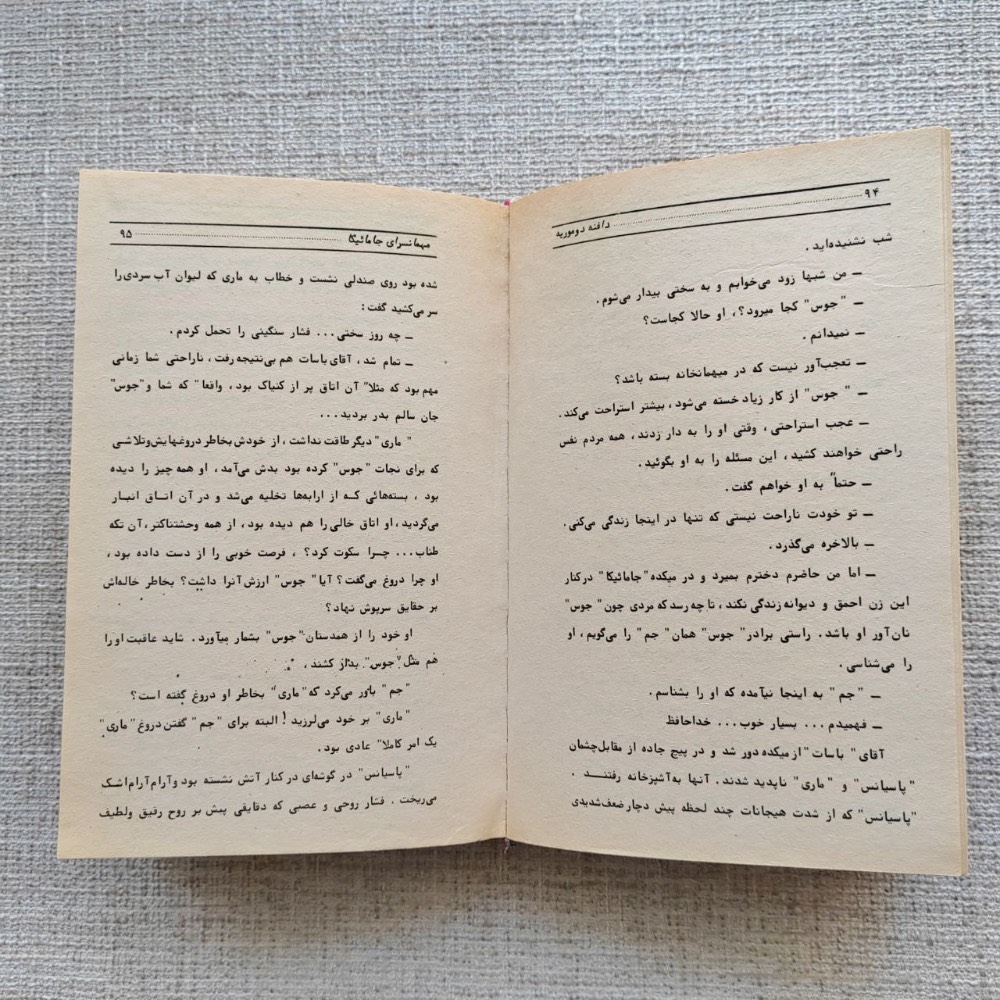 ۹۴ دافنه دوموریه
شب نشنیده‌اید.
ــ من شبها زود می‌خوابم و به سختی بیدار می‌شوم.
ــ "جوس" کجا میرود؟، او حالا کجاست؟
ــ نمیدانم.
ــ تعجب‌آور نیست که در میهمانخانه بسته باشد؟
ــ "جوس" از کار زیاد خسته می‌شود، بیشتر استراحت می‌کند.
ــ عجب استراحتی، وقتی او را به دار زدند، همه مردم نفس
راحتی خواهند کشید، این مسئله را به او بگوئید.
ــ حتماً به او خواهم گفت.
ــ تو خودت ناراحت نیستی که تنها در اینجا زندگی می‌کنی.
ــ بالاخره می‌گذرد.
ــ اما من حاضرم دخترم بمیرد و در میکده "جامائیکا" در کنار
این زن احمق و دیوانه زندگی نکند، تا چه رسد که مردی چون "جوس"
نان‌آور او باشد. راستی برادر "جوس" همان "جم" را می‌گویم، او
را می‌شناسی.
ــ "جم" به اینجا نیآمده که او را بشناسم.
ــ فهمیدم... بسیار خوب... خداحافظ
آقای "باسات" از میکده دور شد و در پیچ جاده از مقابل‌چشمان
"پاسیانس" و "ماری" ناپدید شدند. آنها به‌آشپزخانه رفتند.
"پاسیانس" که از شدت هیجانات چند لحظه پیش دچارضعف‌شدیدی
مهمانسرای جامائیکا ۹۵
شده بود روی صندلی نشست و خطاب به ماری که لیوان آب سردی‌را
سر می‌کشید گفت:
ــ چه روز سختی... فشار سنگینی را تحمل کردم.
ــ تمام شد، آقای باسات هم بی‌نتیجه‌رفت، ناراحتی شما زمانی
مهم بود که مثلا" آن اتاق پر از کنیاک بود، واقعا" که شما و "جوس"
جان سالم بدر بردید...
"ماری" دیگر طاقت نداشت، از خودش بخاطر دروغهایش‌وتلاشی
که برای نجات "جوس" کرده بود بدش می‌آمد، او همه چیز را دیده
بود، بسته‌هائی که از ارابه‌ها تخلیه می‌شد و در آن اتاق انبار
می‌گردید، او اتاق خالی را هم دیده بود، از همه وحشتناکتر، آن تکه
طناب... چرا سکوت کرد؟، فرصت خوبی را از دست داده بود،
او چرا دروغ می‌گفت؟ آیا "جوس" ارزش آنرا داشت؟ بخاطر خاله‌اش
بر حقایق سرپوش نهاد؟
او خود را از همدستان "جوس" بشمار میآورد. شاید عاقبت او را
هم مثل "جوس" بدار کشند،
"جم" باور می‌کرد که "ماری" بخاطر او دروغ گفته است؟
"ماری" بر خود می‌لرزید! البته برای "جم" گفتن دروغ "ماری"
یک امر کاملا" عادی بود.
"پاسیانس" در گوشه‌ای در کنار آتش نشسته بود وآرام‌آرام‌اشک
می‌ریخت. فشار روحی و عصبی که دقایقی پیش بر روح رقیق ولطیف